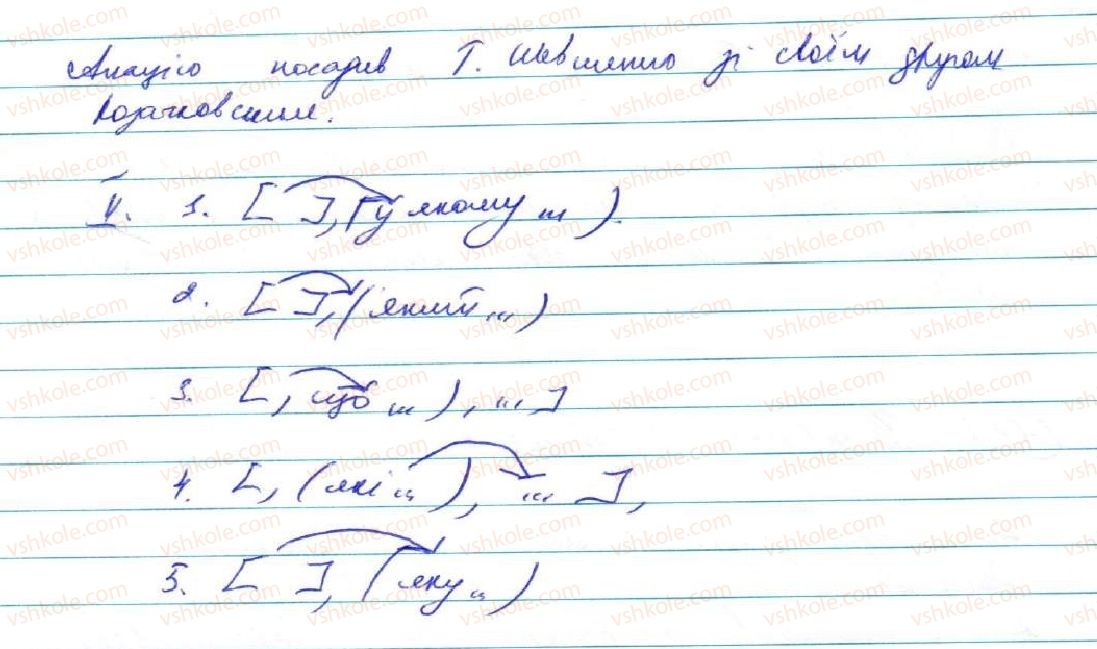 Акацію посадив Т. Шевченко зі своїм другом
Козачковським.
II. 1. [ ], (у якому ...).
2. [ ], (який ...)
3. [, що ...), ... ]
4. [, (які ...), ... ],
5. [ ], (яку ...)